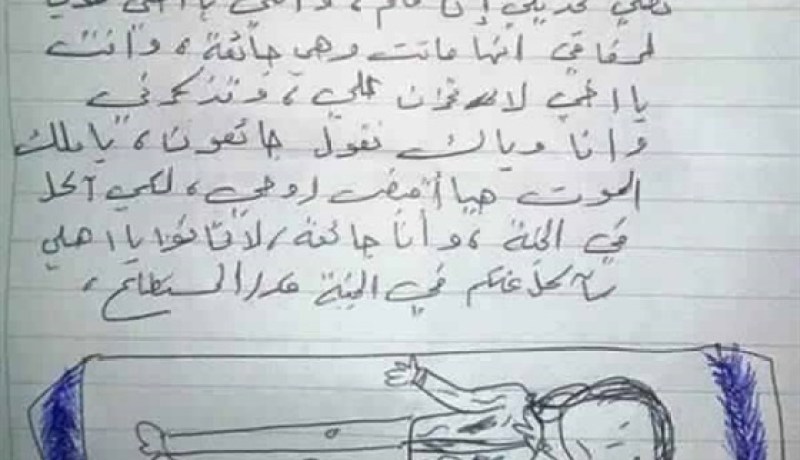 لرفاقي انها ماتت وهي جائعة، وانت
يا اخي لا تحزن علي، وتذكرني
وانا وياك نقول جائعون، يا ملك
الموت هيا أقبض روحي، لكي آكل
في الجنة، وأنا جائعة، لا تخافوا يا اهلي
سآكل عنكم في الجنة قدر المستطاع،